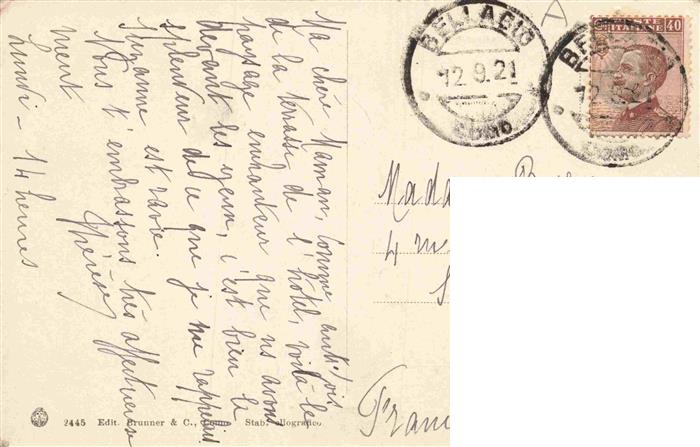 Ma chère Maman, Comme autrefois
de la terrasse de l'hôtel, voilà le
paysage enchanteur que ns avons
devant les yeux, c'est bien la
splendeur de ce que je me rappelais
Suzanne est ravie.
Nous t'embrassons très affectueuse
ment
Thérèse
Lundi - 14 heures
BELLAGIO
12.9.21
COMO
BE
12
40
Mada
4 rue
Fran
2445 Edit. Brunner & C., Como Stab. eliografico